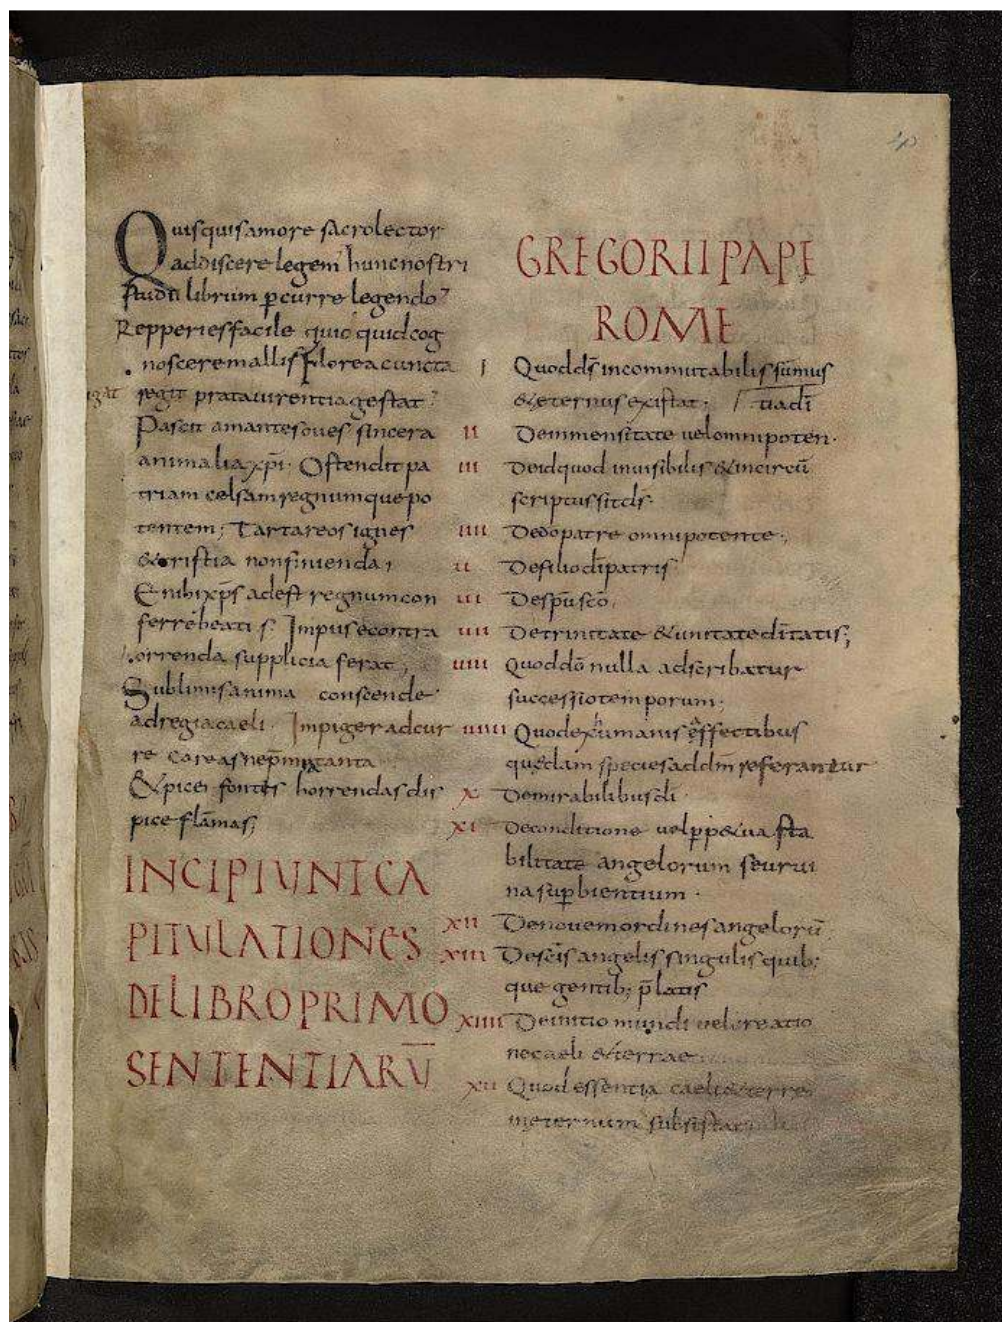 Quisquis amore sacro lector
addiscere legem hunc nostri
studii librum p̄curre legendo
Repperies facile quic quid cog
noscere mallis Florea cuncta
regit prata uirentia gestat
Pascit amantes oues sincera
animalia xp̄i. Ostendit pa
triam celsam regnumque po
tentem; Tartareos ignes
& tristia non finienda;
En ibi xp̄s adest regnum con
ferre beatis. Impus econtra
orrenda supplicia ferat;
Sublimis anima conscende
ad regia caeli. Impiger adcur
re careas nep̄mia tanta
& picei fontes horrendas dis
pice flāmas;
INCIPIUNT CA
PITULATIONES
DE LIBRO PRIMO
SENTENTIARŪ
GREGORII PAPE
ROME
I Quod d̄s incommutabilis sūmus
& eternus existat;
II De inmensitate uel omnipoten. tia d̄i
III De id quod inuisibilis & incircū
scriptus sit d̄s.
IIII De d̄o patre omnipotente;
U De filio d̄i patris
UI De sp̄u sc̄o;
UII De trinitate & unitate diu̅tatis;
UIII Quod d̄o nulla adscribatur
successio temporum;
UIIII Quod ex humanis effectibus
quedam species ad dm̄ referantur
X De mirabilibus d̄i
XI De conditione uel p̱p&ua sta
bilitate angelorum seu rui
na sup̱bientium.
XII De nouem ordines angelorū
XIII De sc̄is angelis singulis quib;
que gentib; p̄latis
XIIII De initio mundi uel creatio
ne caeli & terrae
XU Quod essentia caeli & terre
in eternum subsistat